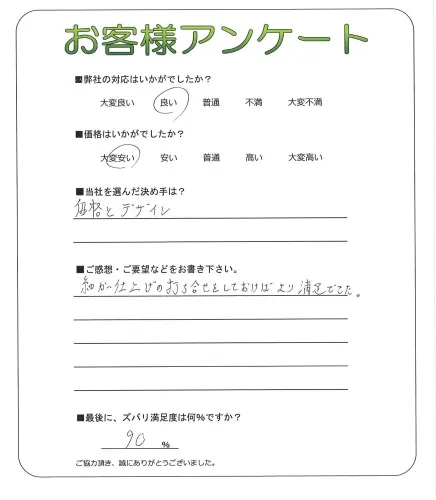 お客様アンケート
■弊社の対応はいかがでしたか?
大変良い 良い 普通 不満 大変不満
■価格はいかがでしたか?
大変安い 安い 普通 高い 大変高い
■当社を選んだ決め手は?
価格とデザイン
■ご感想・ご要望などをお書き下さい。
細かい仕上げの打ち合せをしておけばより満足でした。
■最後に、ズバリ満足度は何%ですか?
90 %
ご協力頂き、誠にありがとうございました。